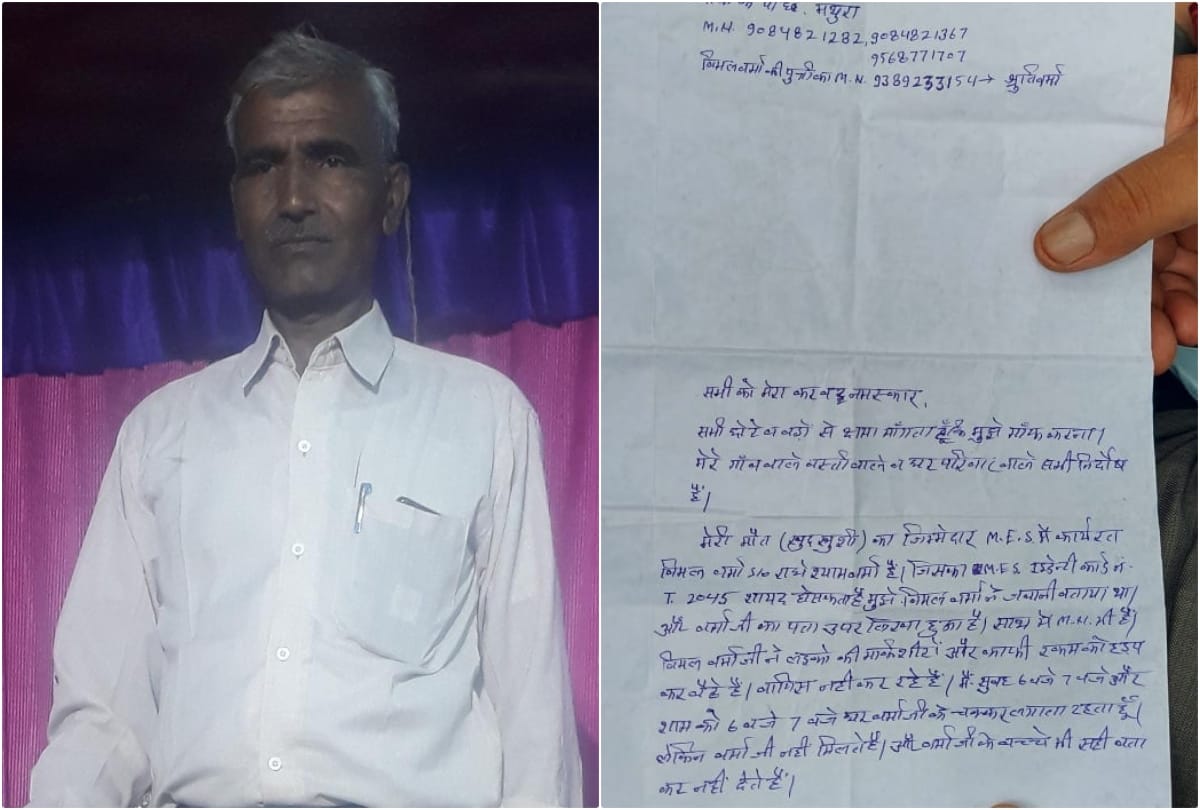 मथुरा
M.N. 9084821282, 9084821367
9568771707
विमल वर्मा की पुत्री का M.N. 9389233154 → श्रुति वर्मा
सभी को मेरा करवद्ध नमस्कार,
सभी छोटे व बड़ो से क्षमा माँगता हूँ कि मुझे माँफ करना।
मेरे गाँव वाले वस्ती वाले व घर परिवार वाले सभी निर्दोष
हैं।
मेरी मौत (खुदखुशी) का जिम्मेदार M.E.S में कार्यरत
विमल वर्मा S/O राधे श्याम वर्मा हैं। जिसका M.E.S. इडेन्टी कार्ड नं-
T. 2045 शायद हो सकता है मुझे विमल वर्मा ने जवानी बताया था।
और वर्मा जी का पता उपर लिखा हुका है। साथ में M.N. भी हैं।
विमल वर्मा जी ने लड़को की मार्कशीटों और काफी रकम को हड़प
कर बैठे हैं। वापिस नहीं कर रहे हैं। मैं सुबह 6 वजे 7 वजे और
शाम को 6 वजे 7 वजे घर वर्मा जी के चक्कर लगाता रहता हूँ।
लेकिन वर्मा जी नहीं मिलते हैं। और वर्मा जी के बच्चे भी सही बता
कर नहीं देते हैं।